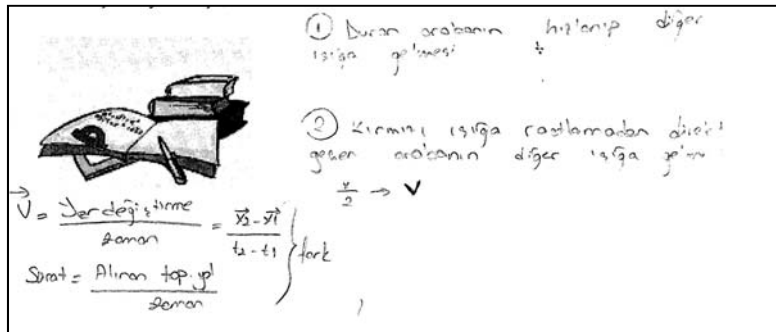 ① Duran arabanın hızlanıp diğer
ışığa gelmesi
② Kırmızı ışığa rastlamadan direkt
geçen arabanın diğer ışığa
v/2 → V
V⃗ = Yer değiştirme / zaman = (x⃗2 - x⃗1) / (t2 - t1) } fark
Sürat = Alınan top. yol / zaman